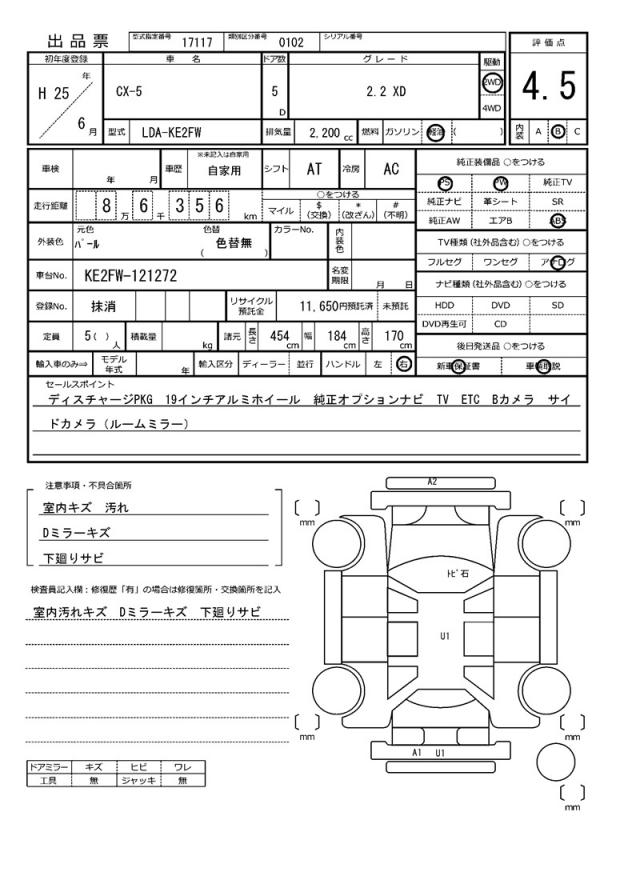 出品票 型式指定番号 17117 類別区分番号 0102 シリアル番号
評価点
4.5
内装 A B C
初年度登録 車名 ドア数 グレード 駆動
H 25 年 6 月 CX-5 5 D 2.2 XD 2WD 4WD
型式 LDA-KE2FW 排気量 2,200 cc 燃料 ガソリン 軽油 ( )
車検 年 月 車歴 ※未記入は自家用 自家用 シフト AT 冷房 AC
走行距離 8 万 6 千 3 5 6 km ○をつける
マイル $(交換) *(改ざん) #(不明)
外装色 元色 パール 色替 色替無 ( ) カラーNo. 内装色
車台No. KE2FW-121272 名変期限 月 日
登録No. 抹消 リサイクル預託金 11,650円預託済 未預託
定員 5( ) 人 積載量 kg 諸元 長さ 454 cm 幅 184 cm 高さ 170 cm
輸入車のみ⇒ モデル年式 年 輸入区分 ディーラー 並行 ハンドル 左 右
純正装備品 ○をつける
PS PW 純正TV
純正ナビ 革シート SR
純正AW エアB ABS
TV種類 (社外品含む) ○をつける
フルセグ ワンセグ アナログ
ナビ種類 (社外品含む) ○をつける
HDD DVD SD
DVD再生可 CD
後日発送品 ○をつける
新車保証書 車輌取説
セールスポイント
ディスチャージPKG 19インチアルミホイール 純正オプションナビ TV ETC Bカメラ サイ
ドカメラ（ルームミラー）
注意事項・不具合箇所
室内キズ 汚れ
Dミラーキズ
下廻りサビ
検査員記入欄：修復歴「有」の場合は修復箇所・交換箇所を記入
室内汚れキズ Dミラーキズ 下廻りサビ
ドアミラー キズ ヒビ ワレ
工具 無 ジャッキ 無
A2
[ ] mm [ ] mm
ﾄﾋﾞ石
U1
[ ] mm [ ] mm
A1 U1
[ ] mm